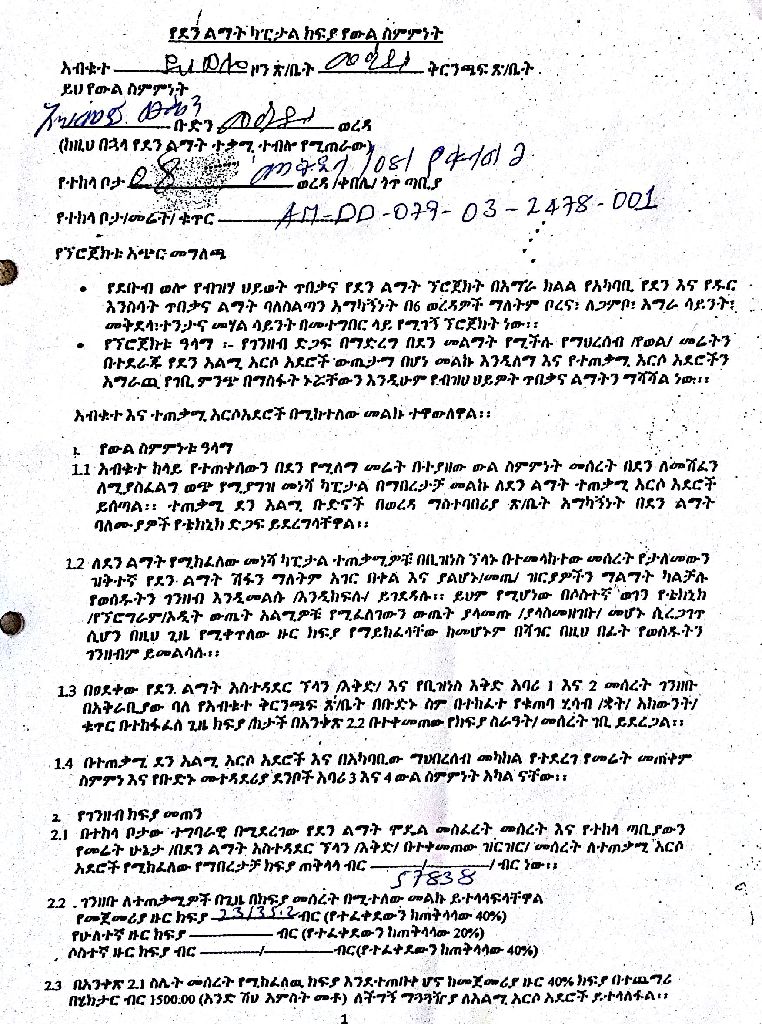 የደን ልማት ካፒታል ክፍያ የውል ስምምነት
አብቁተ ደ/ወሎ ዞን ጽ/ቤት መቅደላ ቅርንጫፍ ጽ/ቤት
ይህ የውል ስምምነት
ቡድን መቅደላ ወረዳ
(ከዚህ በኋላ የደን ልማት ተቃሚ ተብሎ የሚጠራው)
የተከላ ቦታ 08 መቅደላ /08/ ወረዳ /ቀበሌ/ ጎጥ ጣቢያ
የተከላ ቦታ/መሬት/ ቁጥር AM-DD-079-03-2478-001
የፕሮጀክቱ አጭር መግለጫ
• የደቡብ ወሎ የብዝሃ ህይወት ጥበቃና የደን ልማት ፕሮጀክት በአማራ ክልል የአካባቢ የደን እና የዱር
እንስሳት ጥበቃና ልማት ባለስልጣን አማካኝነት በ6 ወረዳዎች ማለትም ቦረና፣ ለጋምቦ፣ አማራ ሳይንት፣
መቅደላ፣ተንታና መሃል ሳይንት በመተግበር ላይ የሚገኝ ፕሮጀክት ነው፡፡
• የፕሮጀክቱ ዓላማ ፡- የገንዘብ ድጋፍ በማድረግ በደን መልማት የሚችሉ የማህረሰብ /የወል/ መሬትን
በተደራጁ የደን አልሚ አርሶ አደሮች ውጤታማ በሆነ መልኩ እንዲለማ እና የተጠቃሚ አርሶ አደሮችን
አማራጪ የገቢ ምንጭ በማስፋት ኑሯቸውን እንዲሁም የብዝሀ ህይዎት ጥበቃና ልማትን ማሻሻል ነው፡፡
አብቁተ እና ተጠቃሚ አርሶአደሮች በሚከተለው መልኩ ተዋውለዋል፡፡
1. የውል ስምምነቱ ዓላማ
1.1 አብቁተ ከላይ የተጠቀሰውን በደን የሚለማ መሬት በተያዘው ውል ስምምነት መሰረት በደን ለመሸፈን
ለሚያስፈልግ ወጭ የሚያግዝ መነሻ ካፒታል በማበረታቻ መልኩ ለደን ልማት ተጠቃሚ አርሶ አደሮች
ይሰጣል፡፡ ተጠቃሚ ደን አልሚ ቡድኖች በወረዳ ማስተባበሪያ ጽ/ቤት አማካኝነት በደን ልማት
ባለሙያዎች የቴክኒክ ድጋፍ ይደረግላቸዋል፡፡
1.2 ለደን ልማት የሚከፈለው መነሻ ካፒታል ተጠቃሚዎቹ በቢዝነስ ፕላኑ በተመላከተው መሰረት የታለመውን
ዝቅተኛ የደን ልማት ሽፋን ማለትም አገር በቀል እና ያልሆኑ/መጤ/ ዝርያዎችን ማልማት ካልቻሉ
የወሰዱትን ገንዘብ እንዲመልሱ /እንዲከፍሉ/ ይገደዳሉ፡፡ ይህም የሚሆነው በሶስተኛ ወገን የቴክኒክ
/የፕሮግራም/ኦዲት ውጤት አልሚዎቹ የሚፈለገውን ውጤት ያላመጡ /ያላስመዘገቡ/ መሆኑ ሲረጋገጥ
ሲሆን በዚህ ጊዜ የሚቀጥለው ዙር ክፍያ የማይከፈላቸው ከመሆኑም በሻገር በዚህ በፊት የወሰዱትን
ገንዘብም ይመልሳሉ፡፡
1.3 በፀደቀው የደን ልማት አስተዳደር ፕላን /እቅድ/ እና የቢዝነስ እቅድ አባሪ 1 እና 2 መሰረት ገንዘቡ
በአቅራቢያው ባለ የአብቁተ ቅርንጫፍ ጽ/ቤት በቡድኑ ስም በተከፈተ የቁጠባ ሂሳብ /ቋት/ አካውንት/
ቁጥር በተከፋፈለ ጊዜ ክፍያ /ከታች በአንቀጽ 2.2 በተቀመጠው የክፍያ ስራዓት/ መሰረት ገቢ ይደረጋል፡፡
1.4 በተጠቃሚ ደን አልሚ አርሶ አደሮች እና በአካባቢው ማህበረሰብ መካከል የተደረገ የመሬት መጠቀም
ስምምነ እና የቡድኑ መተዳደሪያ ደንቦች አባሪ 3 እና 4 ውል ስምምነት አካል ናቸው፡፡
2. የገንዘብ ክፍያ መጠን
2.1 በተከላ ቦታው ተግባራዊ በሚደረገው የደን ልማት ሞዴል መስፈረት መሰረት እና የተከላ ጣቢያውን
የመሬት ሁኔታ /በደን ልማት አስተዳደር ፕላን /እቅድ/ በተቀመጠው ዝርዝር/ መሰረት ለተጠቃሚ አርሶ
አደሮች የሚከፈለው የማበረታቻ ክፍያ ጠቅላላ ብር ____/____/ ብር ነው፡፡
57838
2.2 ገንዘቡ ለተጠቃሚዎች በጊዜ በክፍያ መሰረት በሚተለው መልኩ ይተላላፍላቸዋል
የመጀመሪያ ዙር ክፍያ 23135.2 ብር (የተፈቀደውን ከጠቅላላው 40%)
የሁለተኛ ዙር ክፍያ ____ ብር (የተፈቀደውን ከጠቅላላው 20%)
ሶስተኛ ዙር ክፍያ ብር ____/____ብር(የተፈቀደውን ከጠቅላላው 40%)
2.3 በአንቀጽ 2.1 ስሌት መሰረት የሚከፈለዉ ክፍያ እንደተጠበቀ ሆኖ ከመጀመሪያ ዙር 40% ክፍያ በተጨማሪ
በሄክታር ብር 1500.00 (አንድ ሽህ አምስት መቶ) ለችግኝ ማጓጓዥያ ለአልሚ አርሶ አደሮች ይተላለፋል፡፡
1